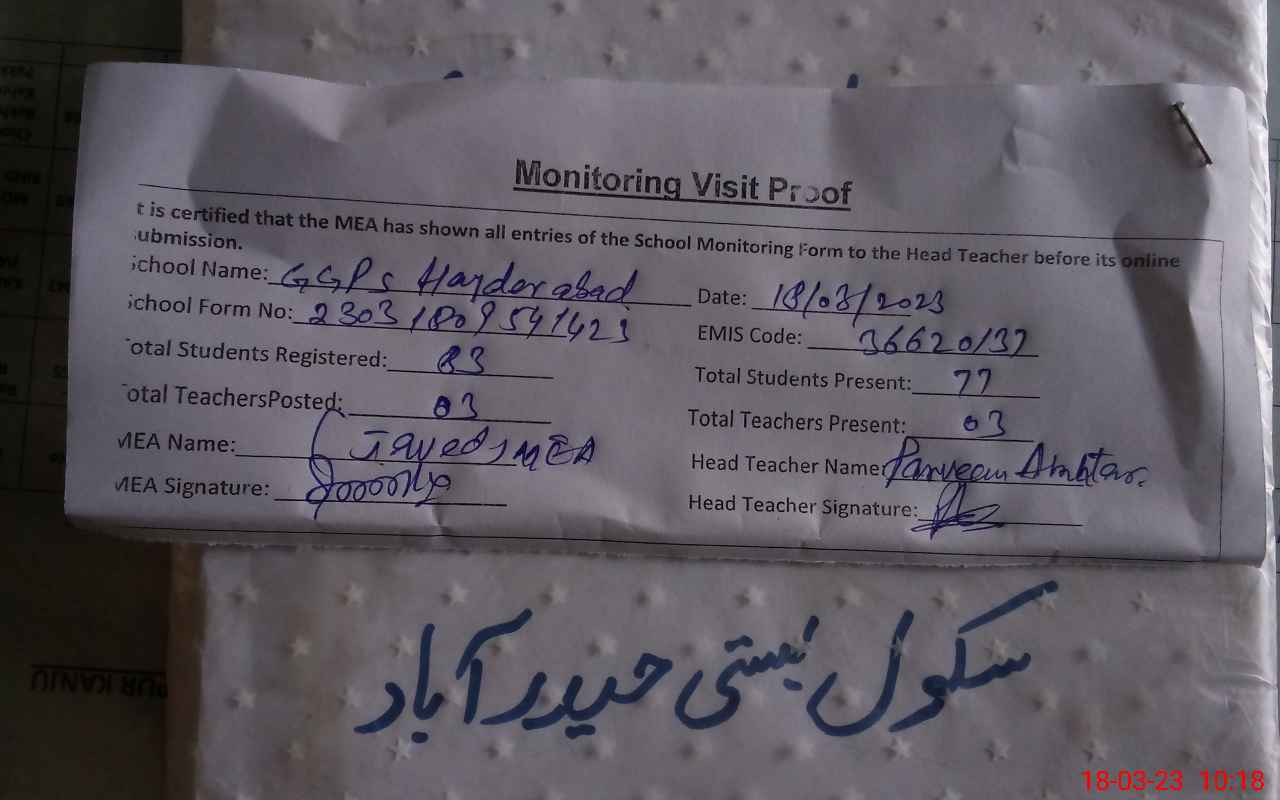 Monitoring Visit Proof
t is certified that the MEA has shown all entries of the School Monitoring Form to the Head Teacher before its online
ubmission.
School Name: GGPS Hayderabad Date: 18/03/2023
School Form No: 23031809541423 EMIS Code: 36620137
otal Students Registered: 83 Total Students Present: 77
otal TeachersPosted: 03 Total Teachers Present: 03
MEA Name: Javed, MEA Head Teacher Name: Parveen Akhtar.
MEA Signature: Head Teacher Signature:
سکول بستی حیدر آباد
PUR KANJU
18-03-23 10:18